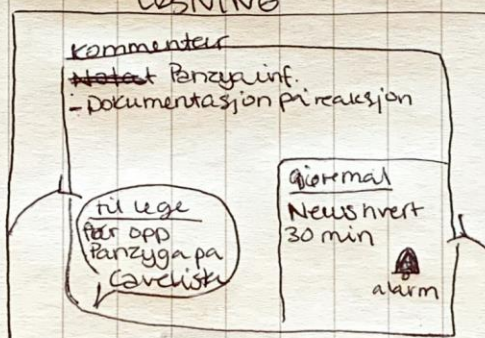 LØSNING
Kommentar
Notat Panzyga inf.
- Dokumentasjon på reaksjon
til lege
Før opp
Panzyga på
Caveliste
Gjøremål
News hvert
30 min
alarm